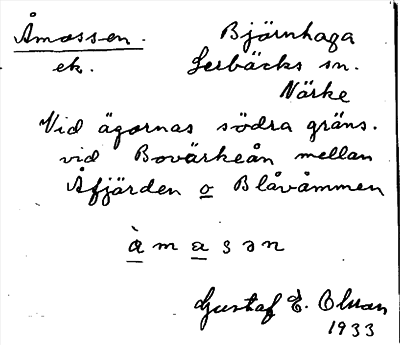 Åmossen. Björnhaga
ek. Lerbäcks sn.
Närke
Vid ägornas södra gräns.
vid Bovärkeån mellan
Åfjärden o Blåvåmmen
å̀ m a s ə n
Gustaf E. Olsson
1933